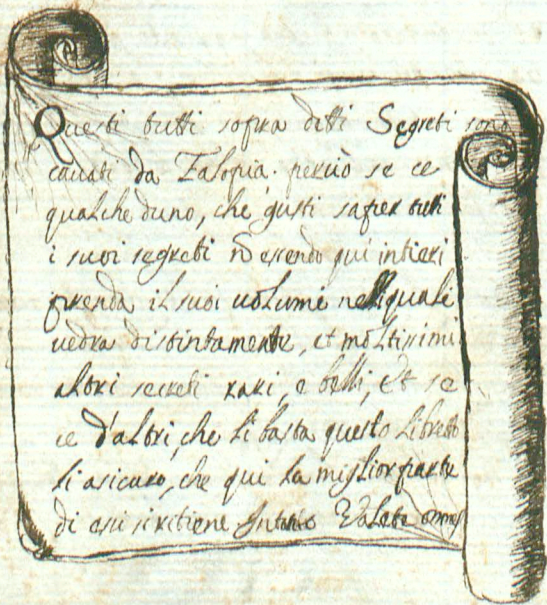 Questi tutti sopra ditti Segreti sono
cauati da Falopia. perciò se ce
qualcheduno, che gusti saper tutti
i suoi segreti nō essendo qui intieri
prenda il suoi uolume nelli quali
uedra distintamente, et moltissimi
altri secreti rari, e belli, Et se
ce d'altri, che li basta questo libretto
li asicuro, che qui la miglior parte
di essi si ritiene Antonio